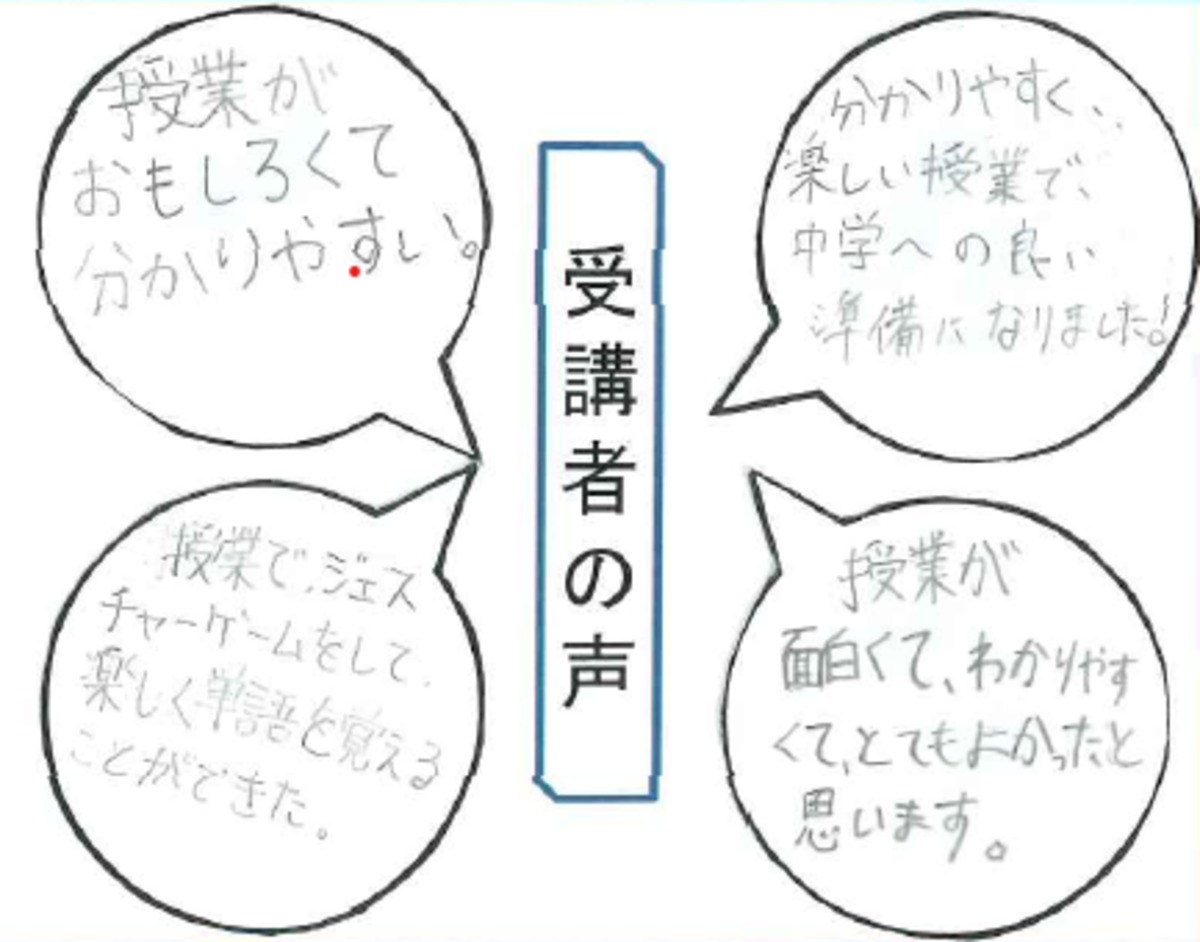 授業が
おもしろくて
分かりやすい。
受講者の声
分かりやすく、
楽しい授業で、
中学への良い
準備になりました!
授業で、ジェス
チャーゲームをして、
楽しく単語を覚える
ことができた。
授業が
面白くて、わかりやす
くて、とてもよかったと
思います。